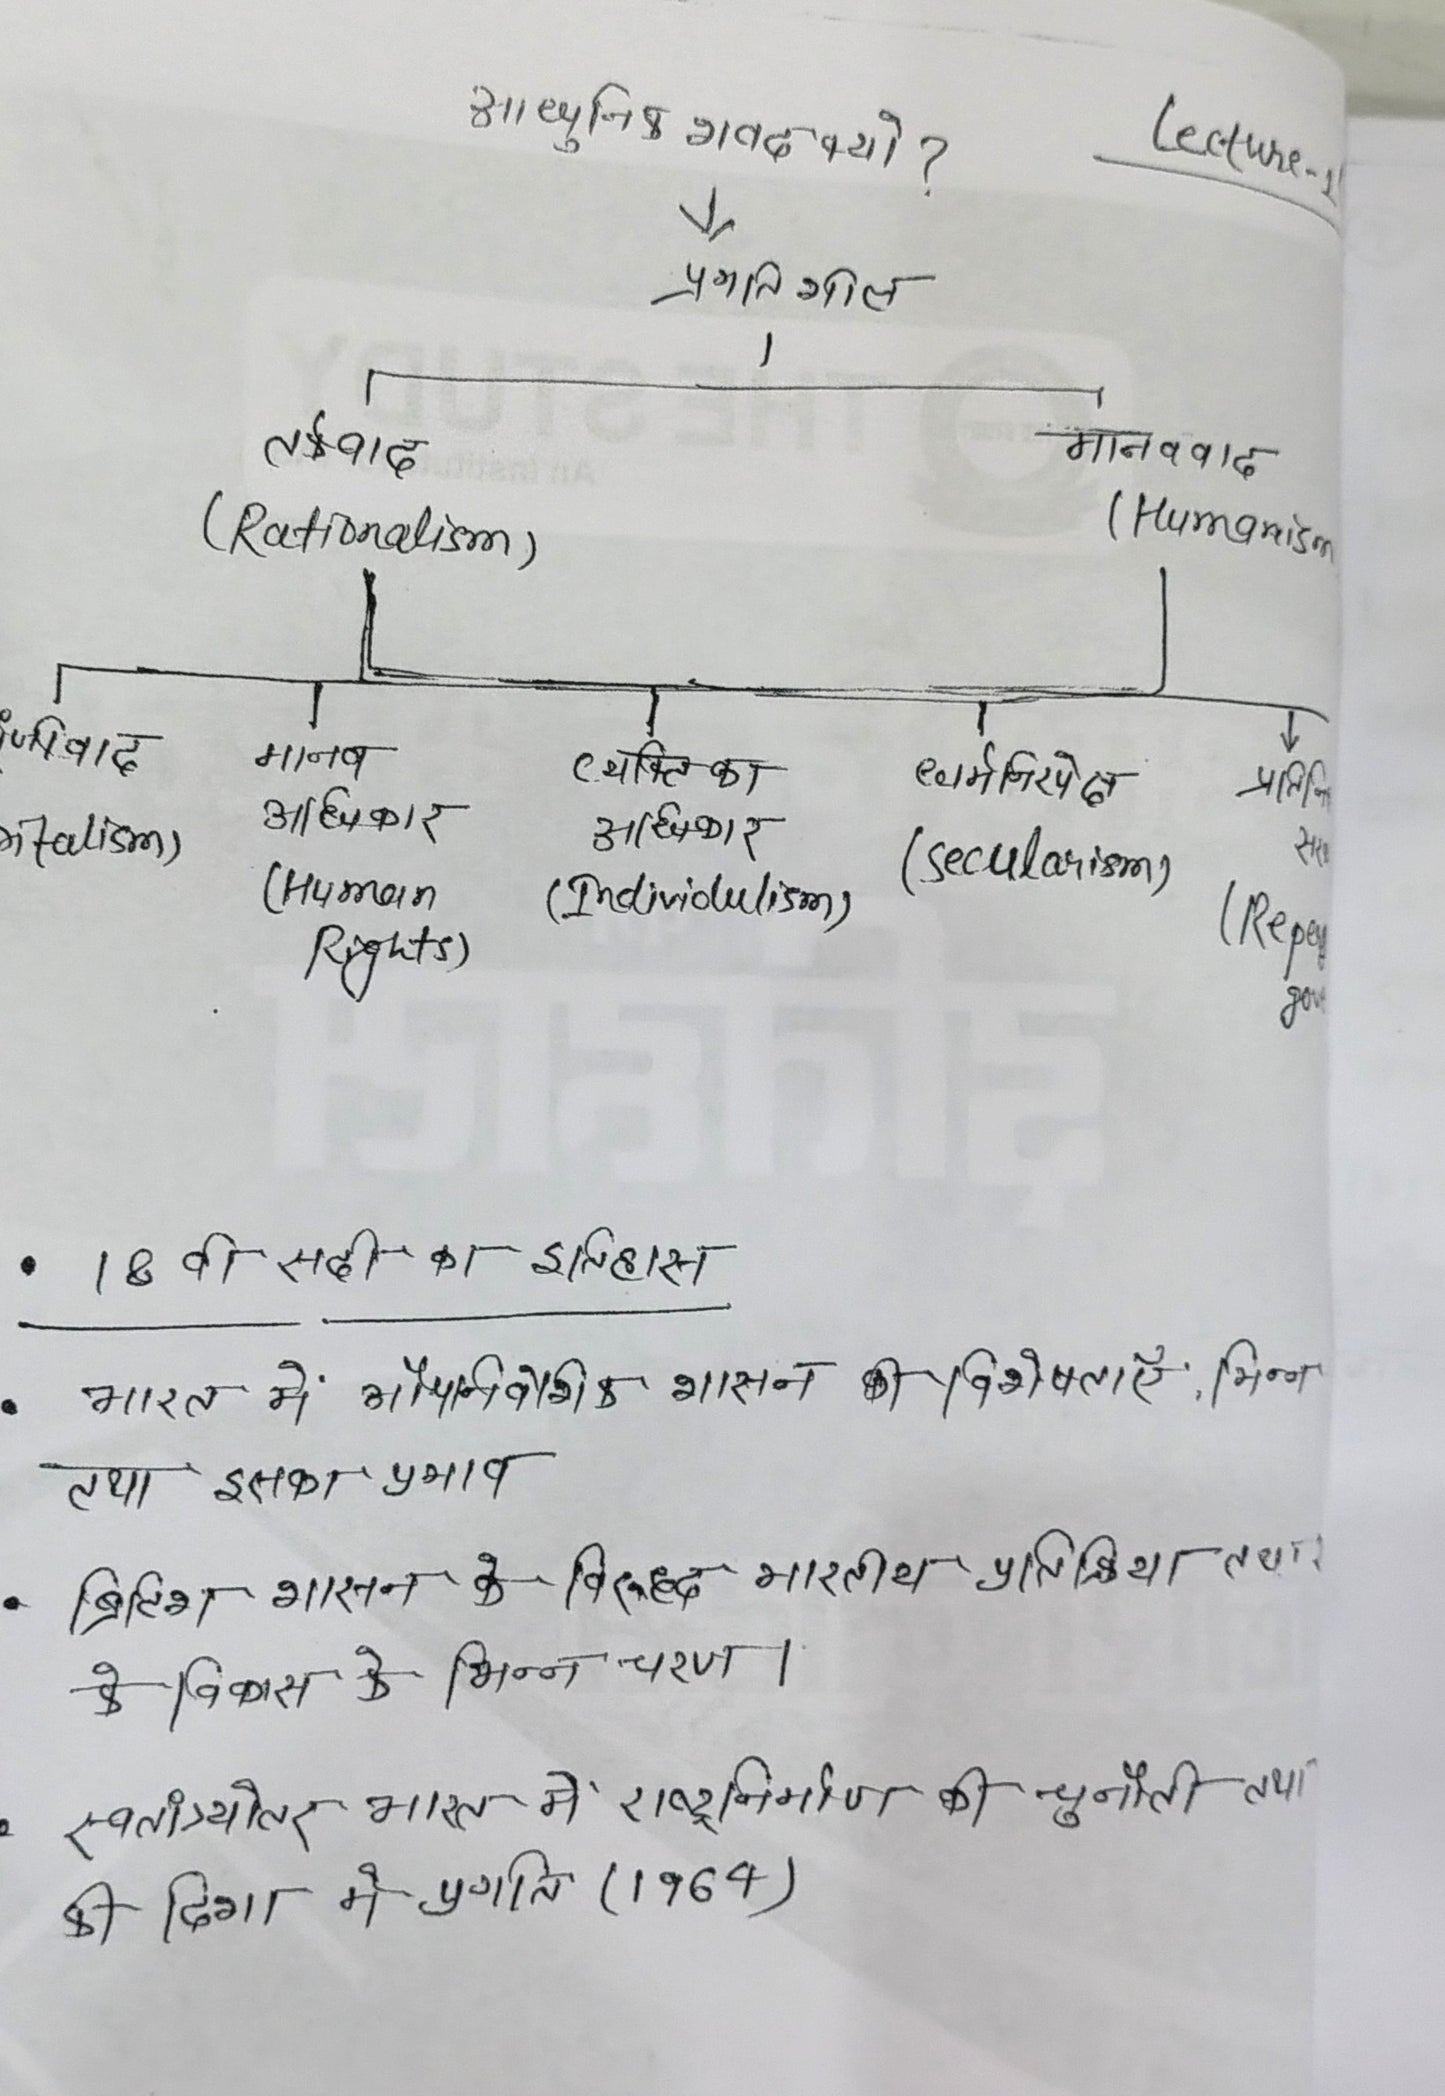 आधुनिक शब्द क्यों ?
Lecture-1
↓
प्रगतिशील
तर्कवाद
(Rationalism)
मानववाद
(Humanism
पूंजीवाद
italism)
मानव
अधिकार
(Human
Rights)
व्यक्ति का
अधिकार
(Individulism)
धर्मनिरपेक्ष
(secularism)
प्रतिनि
(Repe
gov
• 18 वी सदी का इतिहास
• भारत में औपनिवेशिक शासन की विशेषताएँ, भिन्न
तथा इसका प्रभाव
• ब्रिटिश शासन के विरूद्ध भारतीय प्रतिक्रिया तथा
के विकास के भिन्न चरण।
• स्वतंत्र्योतर भारत में राष्ट्रनिर्माण की चुनौती तथा
की दिशा में प्रगति (1964)
THE STUDY
इतिहास